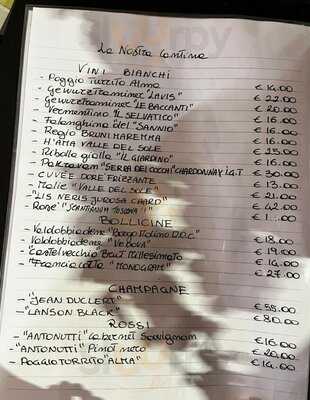 La Nostra Cantina
VINI BIANCHI
- Poggio Turrito Alma €14.00
- Gewurztraminer "LAVIS" €22.00
- Gewurztraminer "LE BACCANTI" €20.00
- Vermentino "IL SELVATICO" €16.00
- Falanghina del "SANNIO" €16.00
- Regio BRUNI MAREMMA €16.00
- H'AMA VALLE DEL SOLE €25.00
- Ribolla gialla "IL GIARDINO" €16.00
- "SERRA DEI COCCI" CHARDONNAY I.G.T €30.00
- CUVÉE DORE FRIZZANTE €13.00
- "VALLE DEL SOLE" €21.00
- "LIS NERIS JUROSA CHARD" €42.00
- Rosè TOSCANA
BOLLICINE
- Valdobbiadene "Borgo Molino D.O.C." €18.00
- Valdobbiadene €19.00
- "Castelvecchio Brut Millesimato €14.00
- "Franciacorta "MONOGRAM" €27.00
CHAMPAGNE
- "JEAN DUCLERT" €55.00
- "LANSON BLACK" €80.00
ROSSI
- "ANTONUTTI" Cabernet Sauvignon €16.00
- "ANTONUTTI" Pinot nero €20.00
- POGGIO TURRITO "ALMA" €14.00